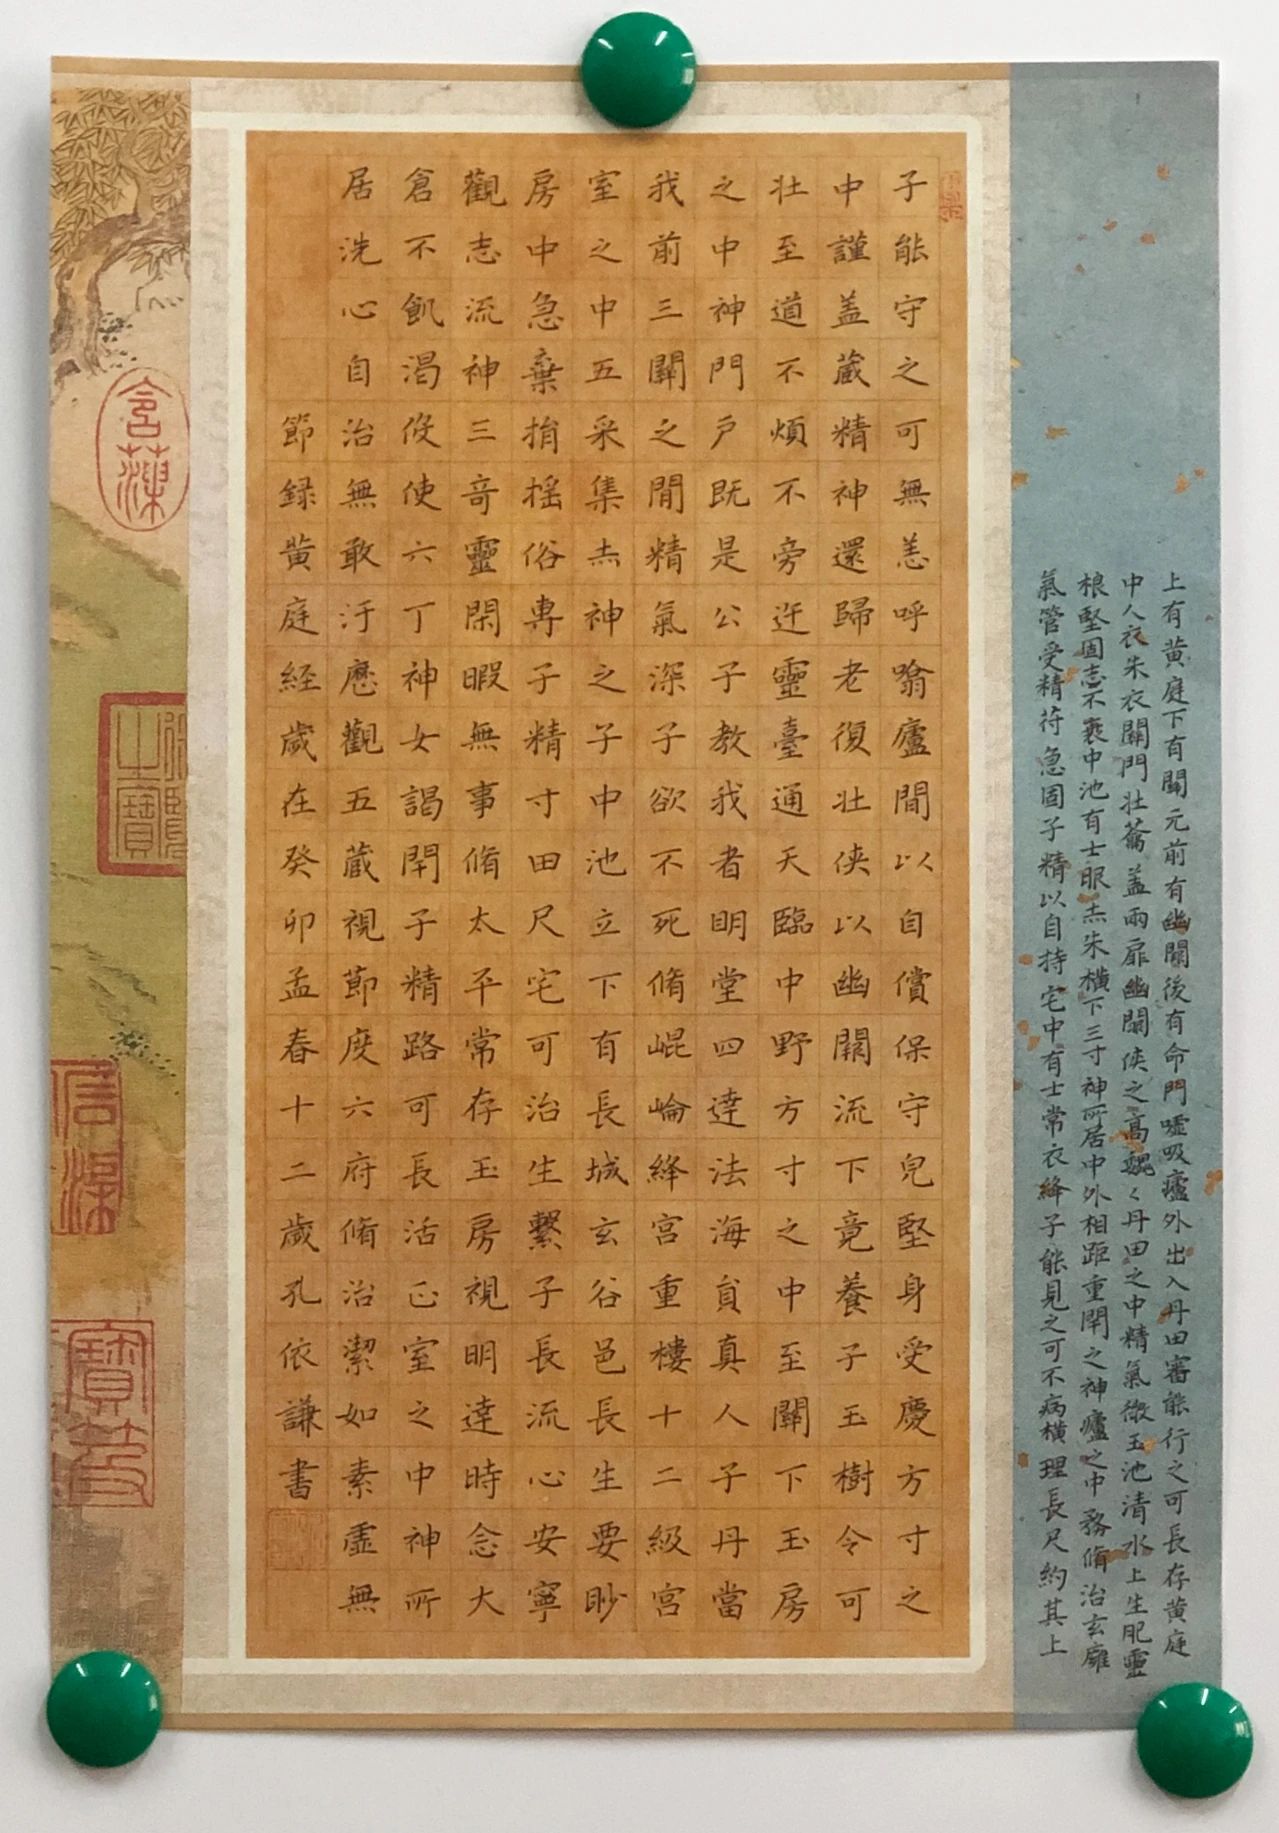 上有黄庭下有關元前有幽闕後有命門噓吸廬外出入丹田審能行之可長存黄庭
中人衣朱衣關門壯蘥蓋兩扉幽闕俠之高巍〻丹田之中精氣微玉池清水上生肥靈
根堅固志不衰中池有士服赤朱横下三寸神所居中外相距重閇之神廬之中務脩治玄廱
氣管受精苻急固子精以自持宅中有士常衣絳子能見之可不病横理長尺約其上
子能守之可無恙呼噏廬間以自償保守皃堅身受慶方寸之
中謹盖藏精神還歸老復壯俠以幽闕流下竟養子玉樹令可
壯至道不煩不旁迕靈臺通天臨中野方寸之中至關下玉房
之中神門戶既是公子教我者明堂四達法海員真人子丹當
我前三關之間精氣深子欲不死脩崐崘絳宮重樓十二級宮
室之中五采集赤神之子中池立下有長城玄谷邑長生要眇
房中急棄捐搖俗專子精寸田尺宅可治生繫子長流心安寧
觀志流神三奇靈閑暇無事脩太平常存玉房視明達時念大
倉不飢渴伇使六丁神女謁閇子精路可長活正室之中神所
居洗心自治無敢汙歷觀五藏視節度六府脩治潔如素虛無
節録黄庭経歲在癸卯孟春十二歲孔依謙書